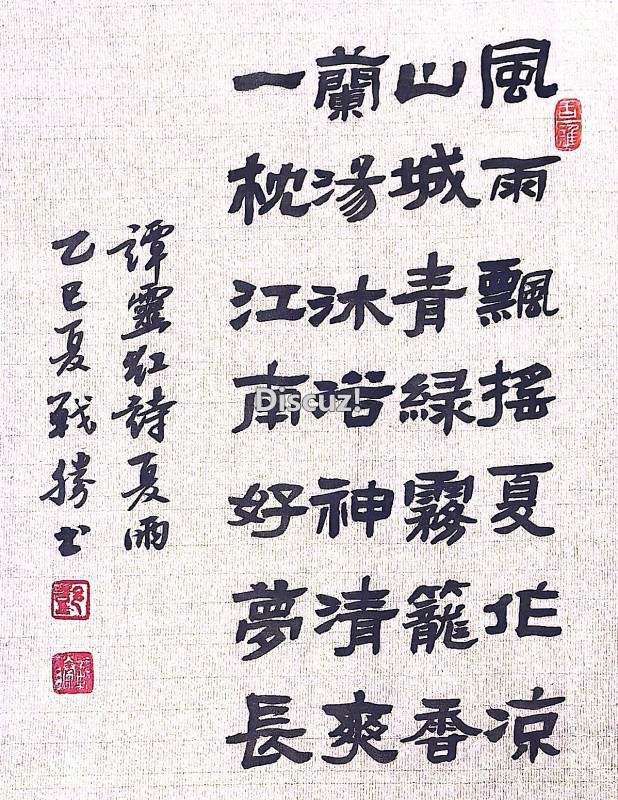 風雨飄搖夏化涼
山城青綠霧籠香
蘭湯沐浴神清爽
一枕江南好夢長
譚靈紅詩夏雨
乙巳夏戰勝書
Discuz!